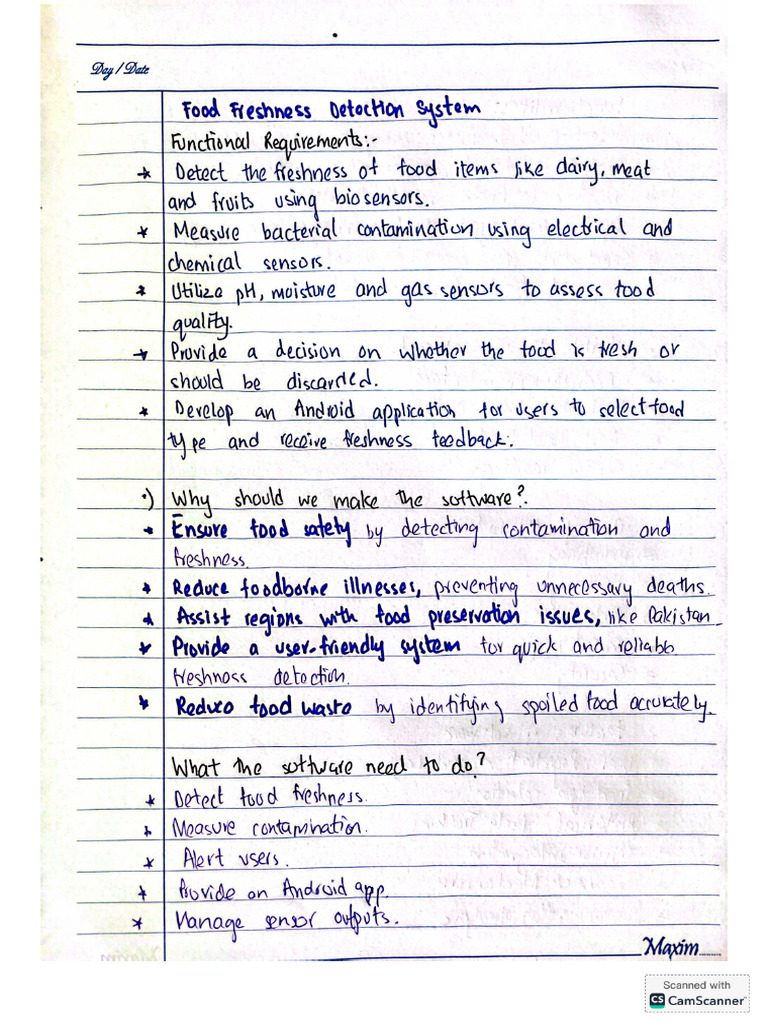 Day / Date
Food Freshness Detection System
Functional Requirements:-
* Detect the freshness of food items like dairy, meat
and fruits using biosensors.
* Measure bacterial contamination using electrical and
chemical sensors.
* Utilize pH, moisture and gas sensors to assess food
quality.
* Provide a decision on whether the food is fresh or
should be discarded.
* Develop an Android application for users to select food
type and receive freshness feedback.
•) Why should we make the software?
* Ensure food safety by detecting contamination and
freshness.
* Reduce foodborne illnesses, preventing unnecessary deaths.
* Assist regions with food preservation issues, like Pakistan
* Provide a user-friendly system for quick and reliable
freshness detection.
* Reduce food waste by identifying spoiled food accurately.
What the software need to do?
* Detect food freshness.
* Measure contamination.
* Alert users.
* Provide an Android app.
* Manage sensor outputs.
Maxim
Scanned with
CS CamScanner